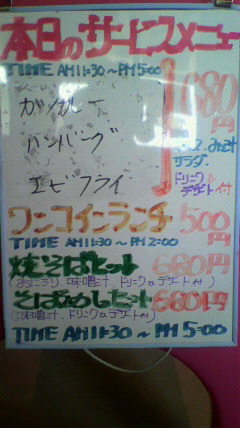 本日のサービスメニュー
TIME AM11:30～PM5:00
カツカレー
ハンバーグ
エビフライ
680円
サラダ
ドリンク
デザート付
ワンコインランチ 500円
TIME AM11:30～PM2:00
焼そばセット 680円
(おにぎり 味噌汁、ドリンクorデザート付)
そばめしセット 680円
(味噌汁、ドリンクorデザート付)
TIME AM11:30～PM5:00